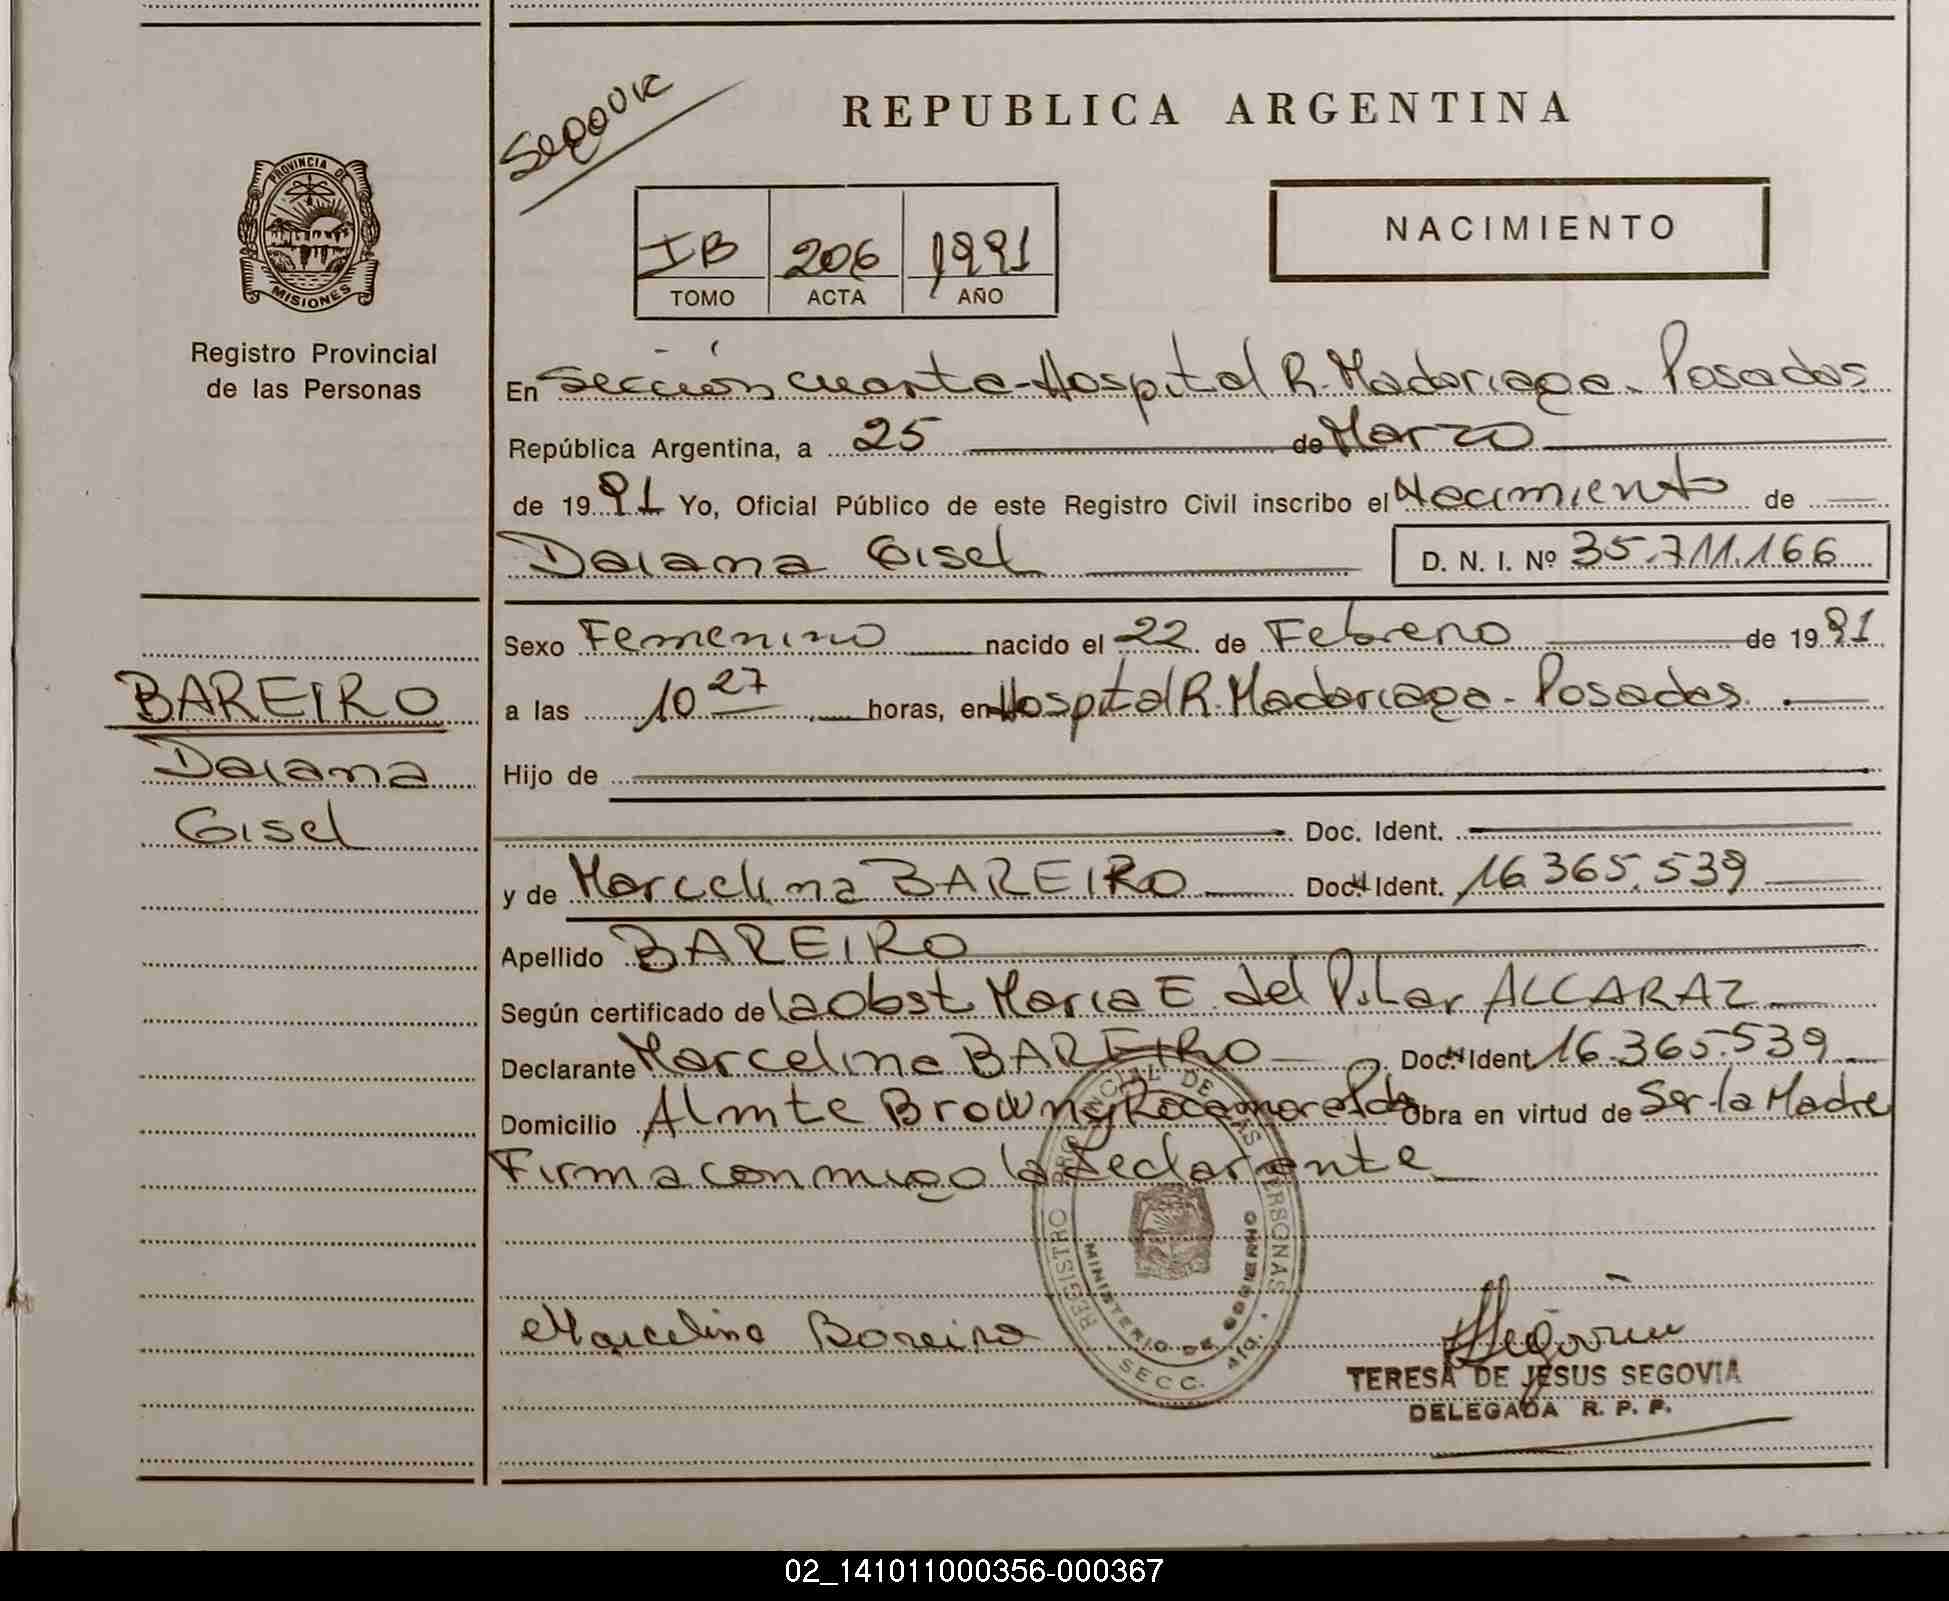 Segovia
REPUBLICA ARGENTINA
PROVINCIA DE
MISIONES
Registro Provincial
de las Personas
IB 206 1991
TOMO ACTA AÑO
NACIMIENTO
En Sección cuarta - Hospital R. Madariaga - Posadas
República Argentina, a 25 de Marzo
de 1991 Yo, Oficial Público de este Registro Civil inscribo el Nacimiento de
Daiana Gisel D. N. I. Nº 35.711.166
Sexo Femenino nacido el 22 de Febrero de 1991
a las 10 27 horas, en Hospital R. Madariaga - Posadas.
Hijo de
Doc. Ident.
y de Marcelina BAREIRO Doc. Ident. 16.365.539
Apellido BAREIRO
Según certificado de la Obst. Maria E. del Pilar ALCARAZ
Declarante Marcelina BAREIRO Doc. Ident 16.365.539
Domicilio Almte Brown y Rocamora Pdas Obra en virtud de Ser la Madre
Firma conmigo la declarante
BAREIRO
Daiana
Gisel
Marcelina Bareiro
REGISTRO PROVINCIAL DE LAS PERSONAS
MINISTERIO DE GOBIERNO
SECC. 4ta.
Segovia
TERESA DE JESUS SEGOVIA
DELEGADA R. P. P.
02_141011000356-000367